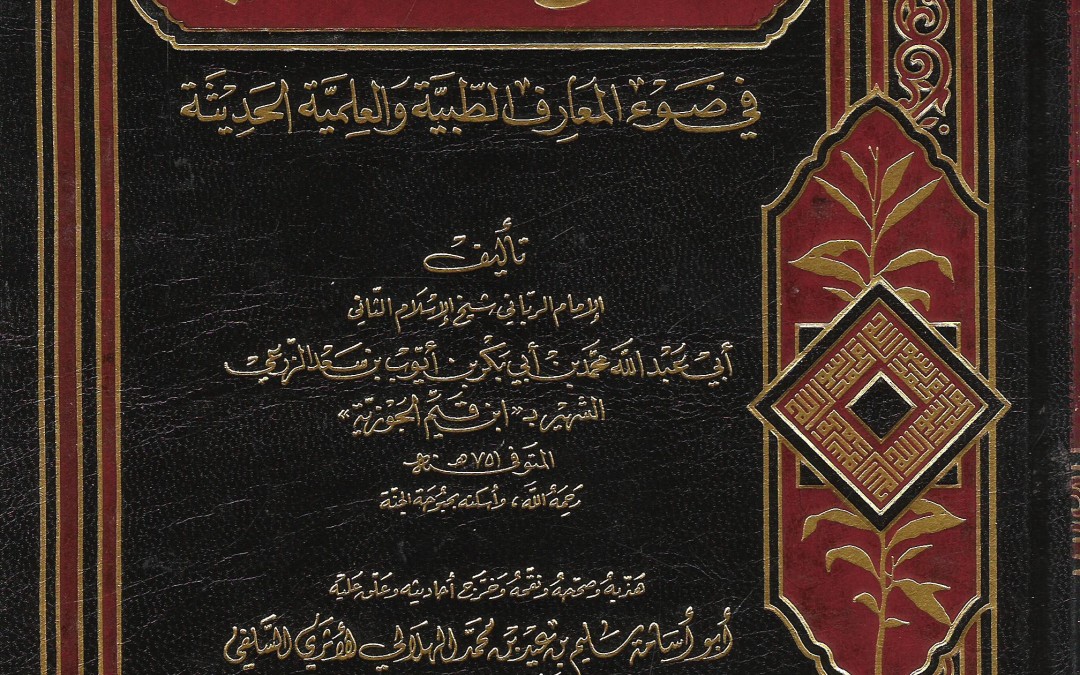 في ضَوْءِ المَعَارِفِ الطِّبِّيَّةِ وَالعِلمِيَّةِ الحَدِيثَة
تأليف
الإمام الرباني شيخ الإسلام الثاني
أبي عبد الله محمد بن أبي بكر بن أيوب بن سعد الزرعي
الشهير بـ «ابن قيم الجوزية»
المتوفى ٧٥١ هـ
رحمه الله، وأسكنه بحبوحة الجنة
هذبه وصححه ونقحه وخرج أحاديثه وعلق عليه
أبو أسامة سليم بن عيد بن محمد الهلالي الأثري السلفي